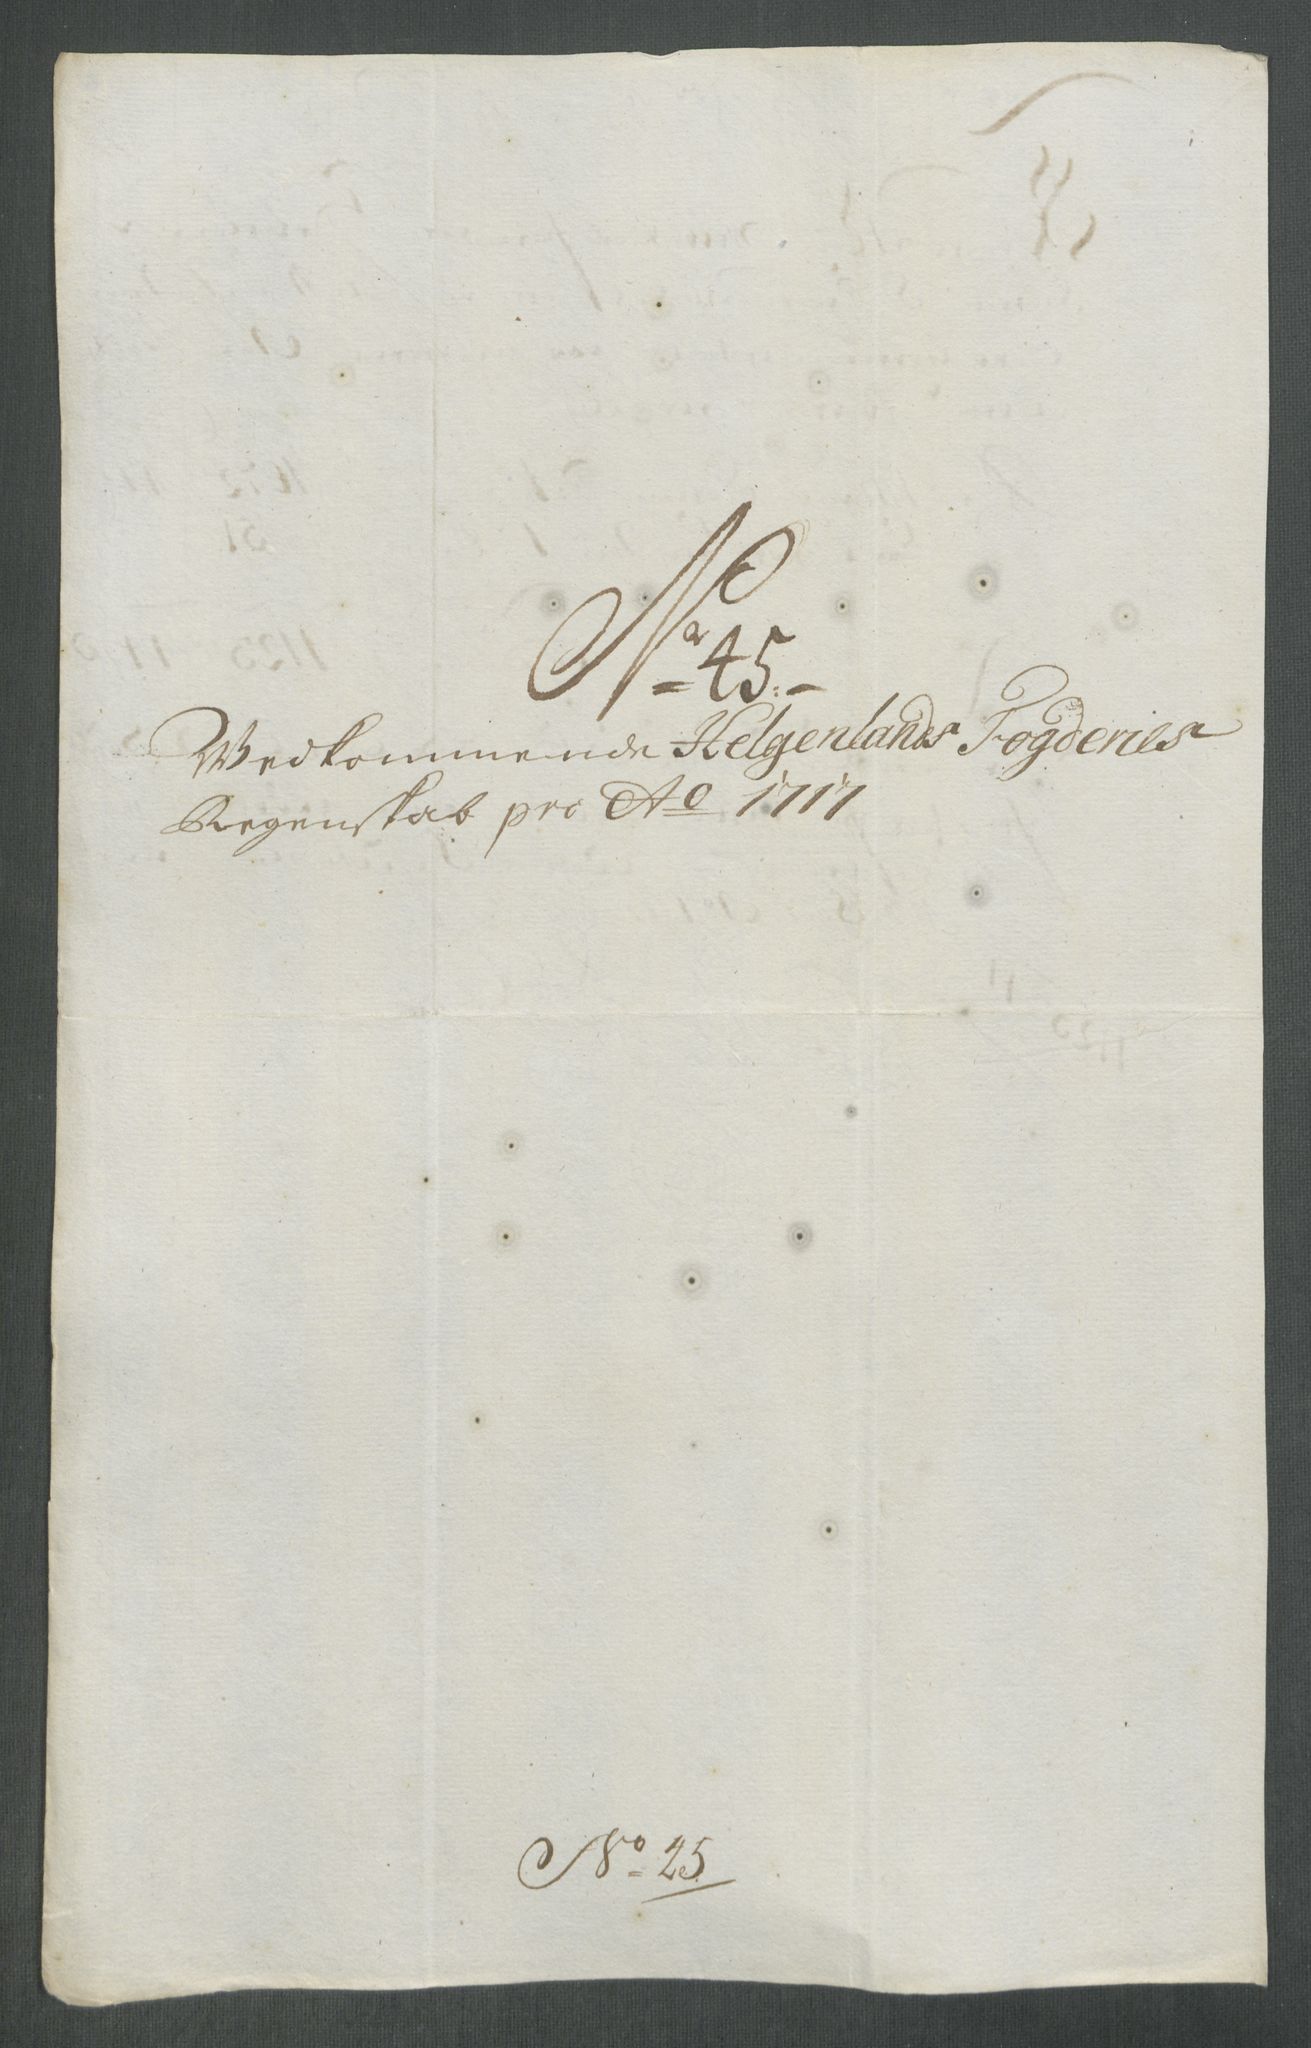 No 45.
Vedkommende Helgenlands Fogderies
Regenskab pro Ao 1717
No 45